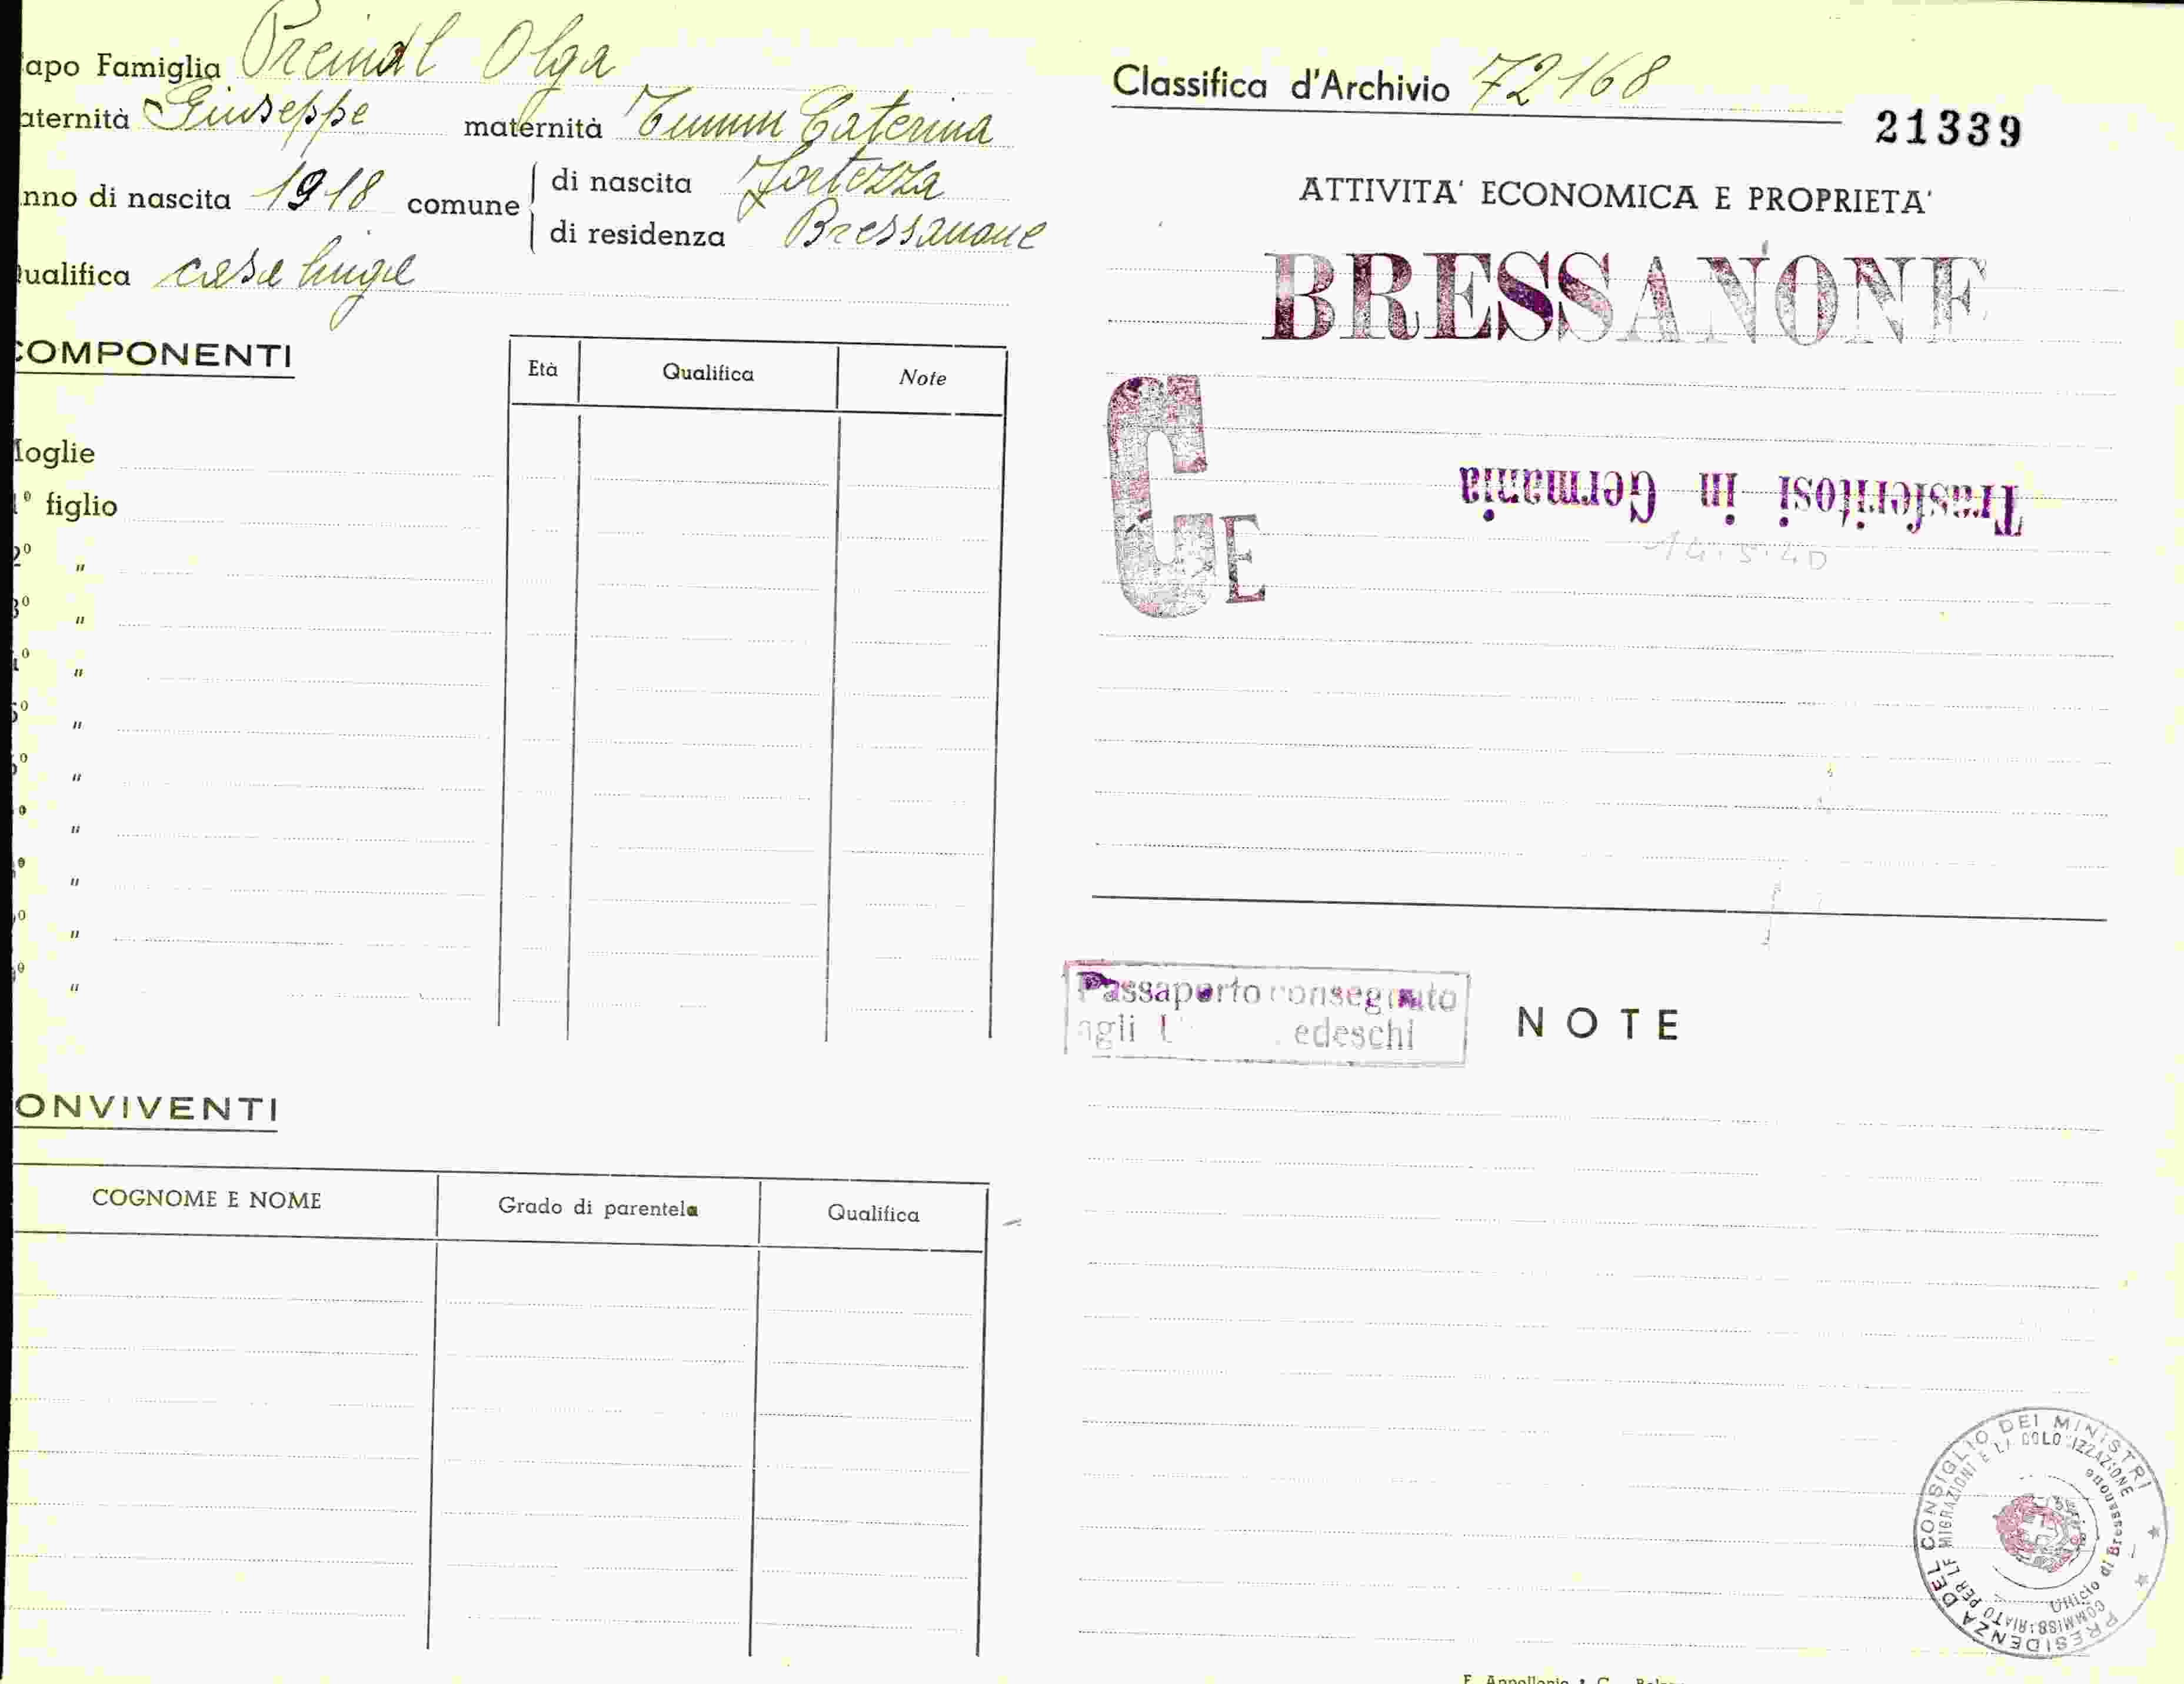 apo Famiglia Preindl Olga
aternità Giuseppe maternità Caterina
nno di nascita 1918 comune di nascita Fortezza
di residenza Bressanone
ualifica casalinga
COMPONENTI
Età Qualifica Note
Moglie
1º figlio
2º "
3º "
4º "
5º "
6º "
º "
º "
º "
º "
ONVIVENTI
COGNOME E NOME Grado di parentela Qualifica
Classifica d'Archivio 72168
21339
ATTIVITA' ECONOMICA E PROPRIETA'
BRESSANONE
GE
Trasferitosi in Germania
14.5.40
Passaporto consegnato
agli U edeschi
NOTE
PRESIDENZA DEL CONSIGLIO DEI MINISTRI
COMMISSARIATO PER LE MIGRAZIONI E LA COLONIZZAZIONE
Ufficio di Bressanone